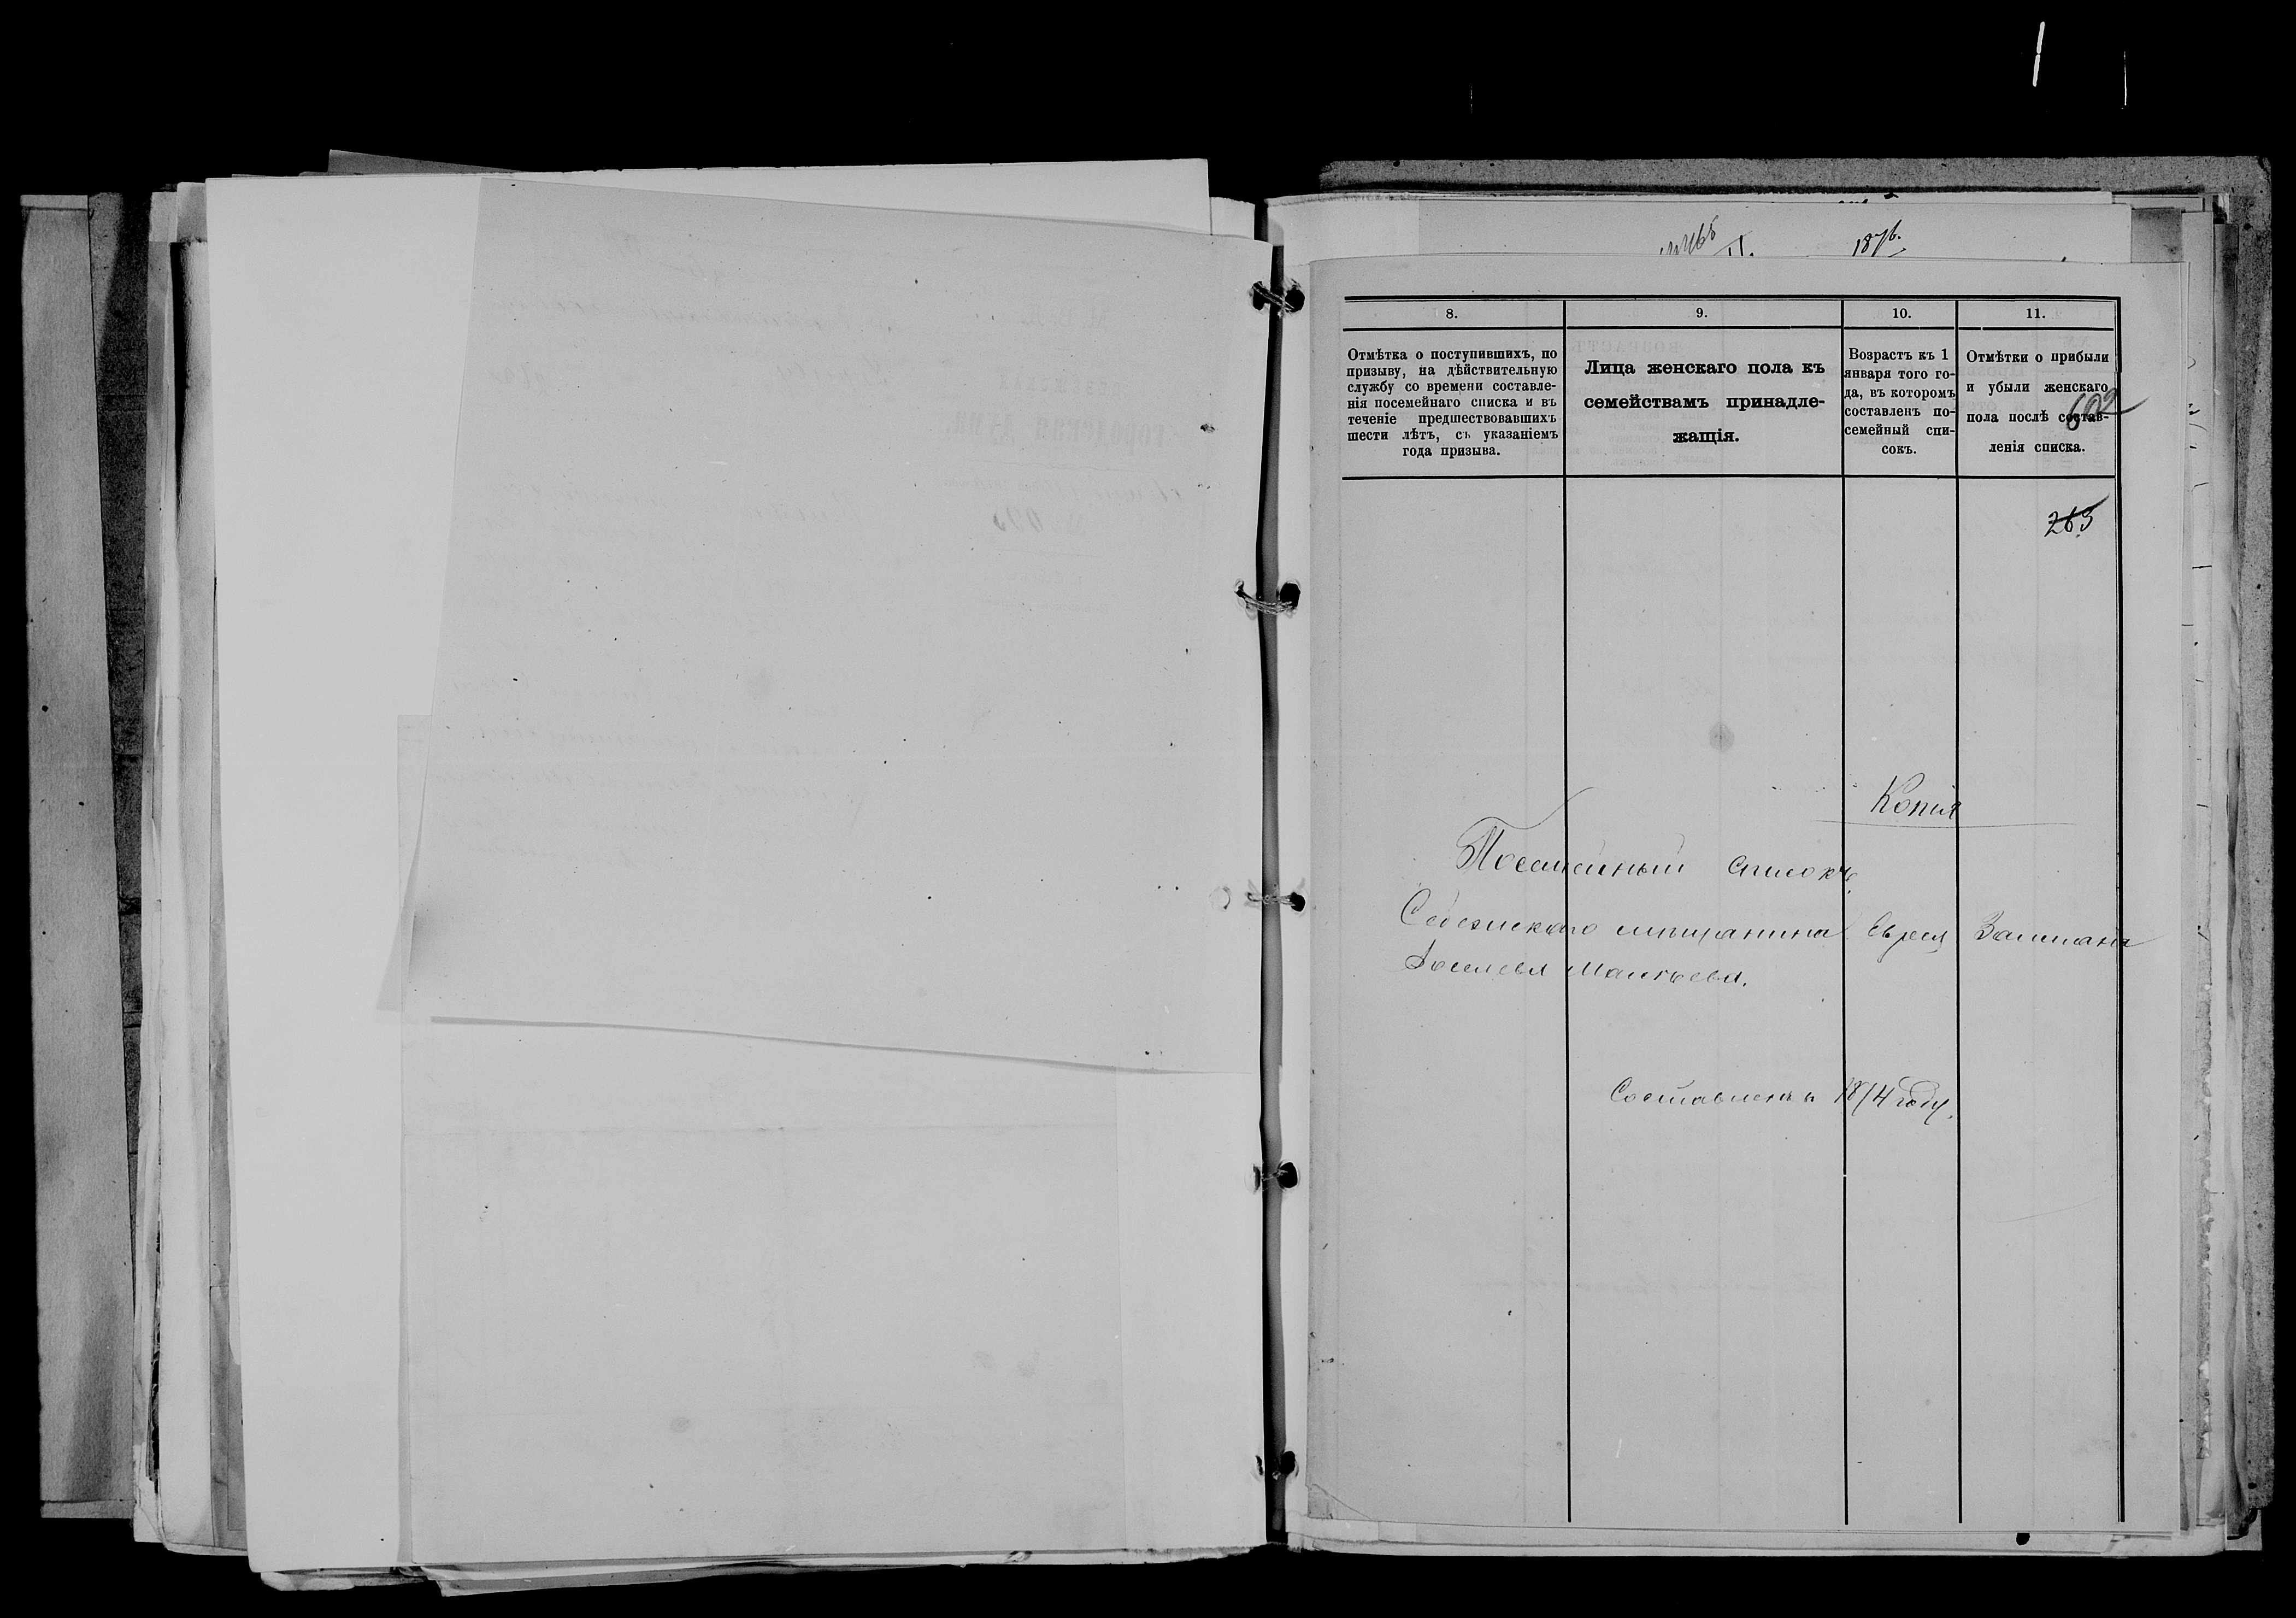 1876.
8.
9.
10.
11.
Отмѣтка о поступившихъ, по
призыву, на дѣйствительную
службу со времени составле-
нія посемейнаго списка и въ
теченіе предшествовавшихъ
шести лѣтъ, съ указаніемъ
года призыва.
Лица женскаго пола къ
семействамъ принадле-
жащія.
Возрастъ къ 1
января того го-
да, въ которомъ
составленъ по-
семейный спи-
сокъ.
Отмѣтки о прибыли
и убыли женскаго
пола послѣ состав-
ленія списка.
602
263
Копія
Посемейный списокъ
Себежскаго мѣщанина Еврея Залмана
Іоселева
Составленъ 1874 году.